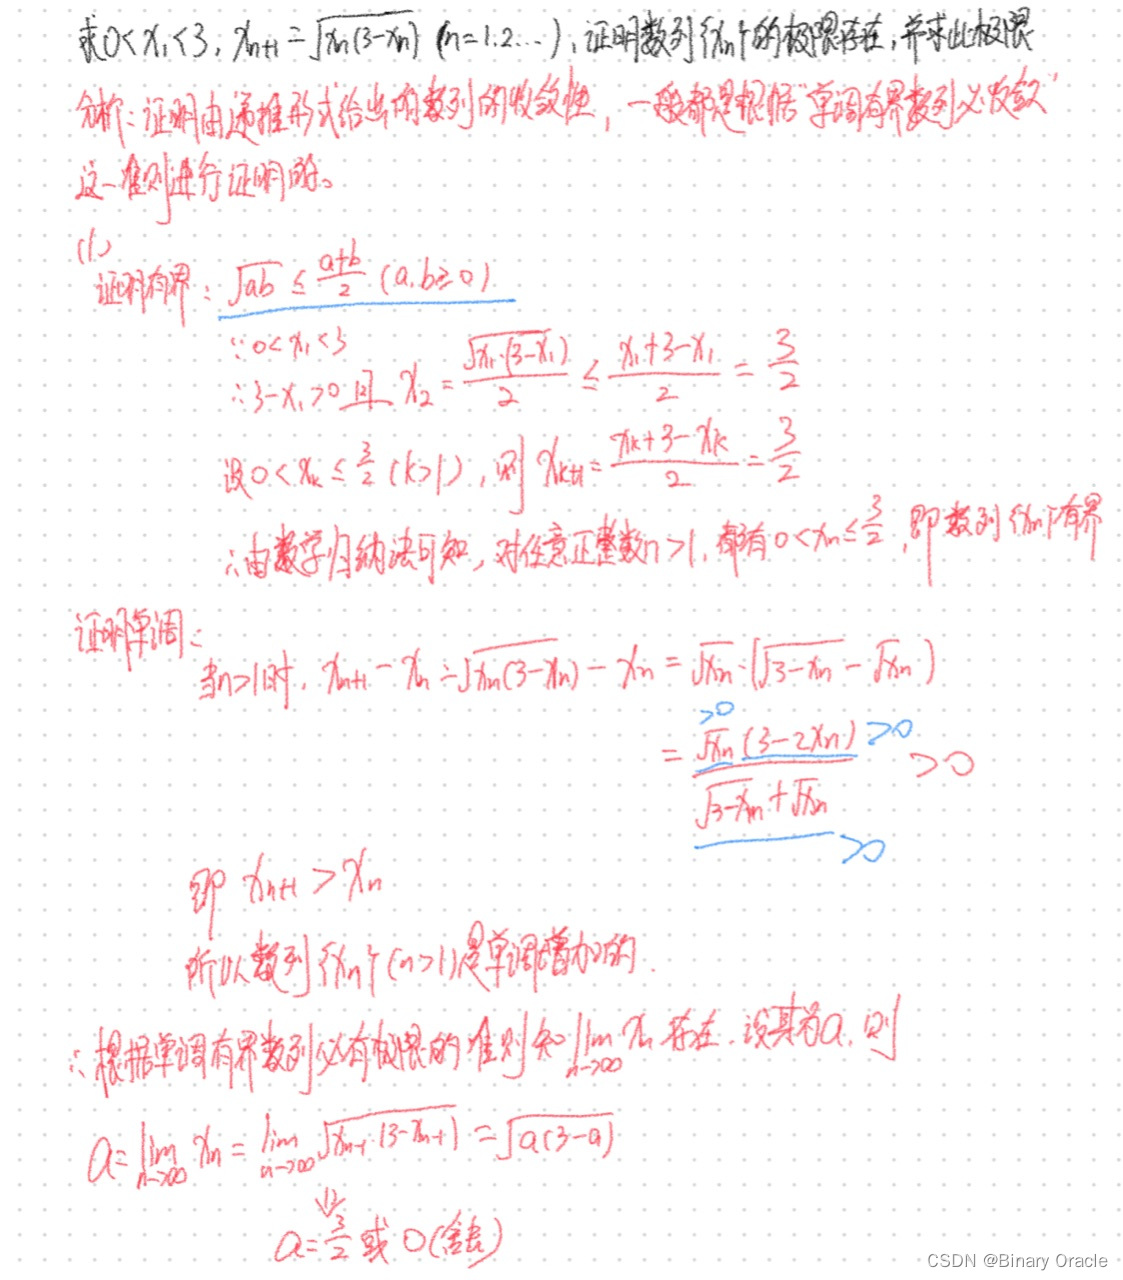 求0<x₁<3, xₙ₊₁=√(xₙ(3-xₙ)) (n=1.2...), 证明数列{xₙ}的极限存在, 并求此极限
分析: 证明由递推形式给出的数列的收敛性, 一般都是根据"单调有界数列必收敛"
这一准则进行证明的。
(1)
证明有界: √ab ≤ (a+b)/2 (a,b≥0)
∵0<x₁<3
∴3-x₁>0且 x₂ = √(x₁·(3-x₁))/2 ≤ (x₁+3-x₁)/2 = 3/2
设0<xₖ≤3/2 (k>1), 则 xₖ₊₁=(xₖ+3-xₖ)/2=3/2
∴由数学归纳法可知, 对任意正整数n>1, 都有0<xₙ≤3/2, 即数列{xₙ}有界
证明单调:
当n>1时, xₙ₊₁-xₙ=√(xₙ(3-xₙ))-xₙ=√xₙ·(√(3-xₙ)-√xₙ)
>0
= √xₙ(3-2xₙ)/(√(3-xₙ)+√xₙ) >0
>0
>0
即 xₙ₊₁>xₙ
所以数列{xₙ}(n>1)是单调增加的.
∴根据单调有界数列必有极限的准则知 lim n->∞ xₙ 存在. 设其为a, 则
a=lim n->∞ xₙ=lim n->∞ √(xₙ₋₁·(3-xₙ₋₁))=√(a(3-a))
⇓
a=3/2 或 0(舍去)
CSDN @Binary Oracle